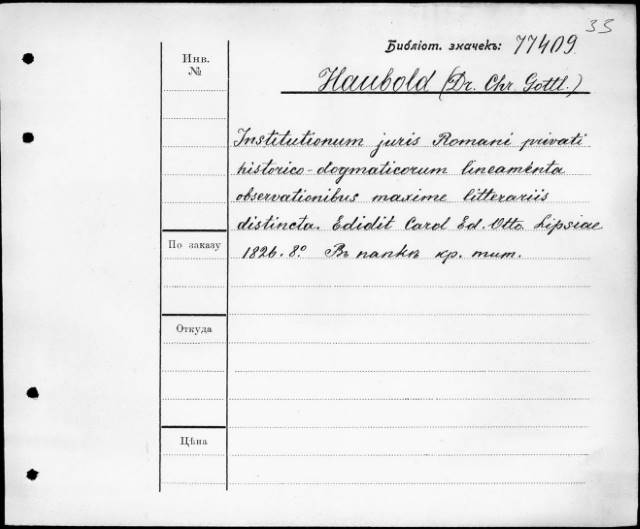 33
Библіот. значекъ: 77409
Инв. №
Haubold (Dr. Chr. Gottl.)
Institutionum juris Romani privati
historico-dogmaticorum lineamenta
observationibus maxime litterariis
distincta. Edidit Carol Ed. Otto. Lipsiae
1826. 8.º Въ папкѣ кр. тит.
По заказу
Откуда
Цѣна